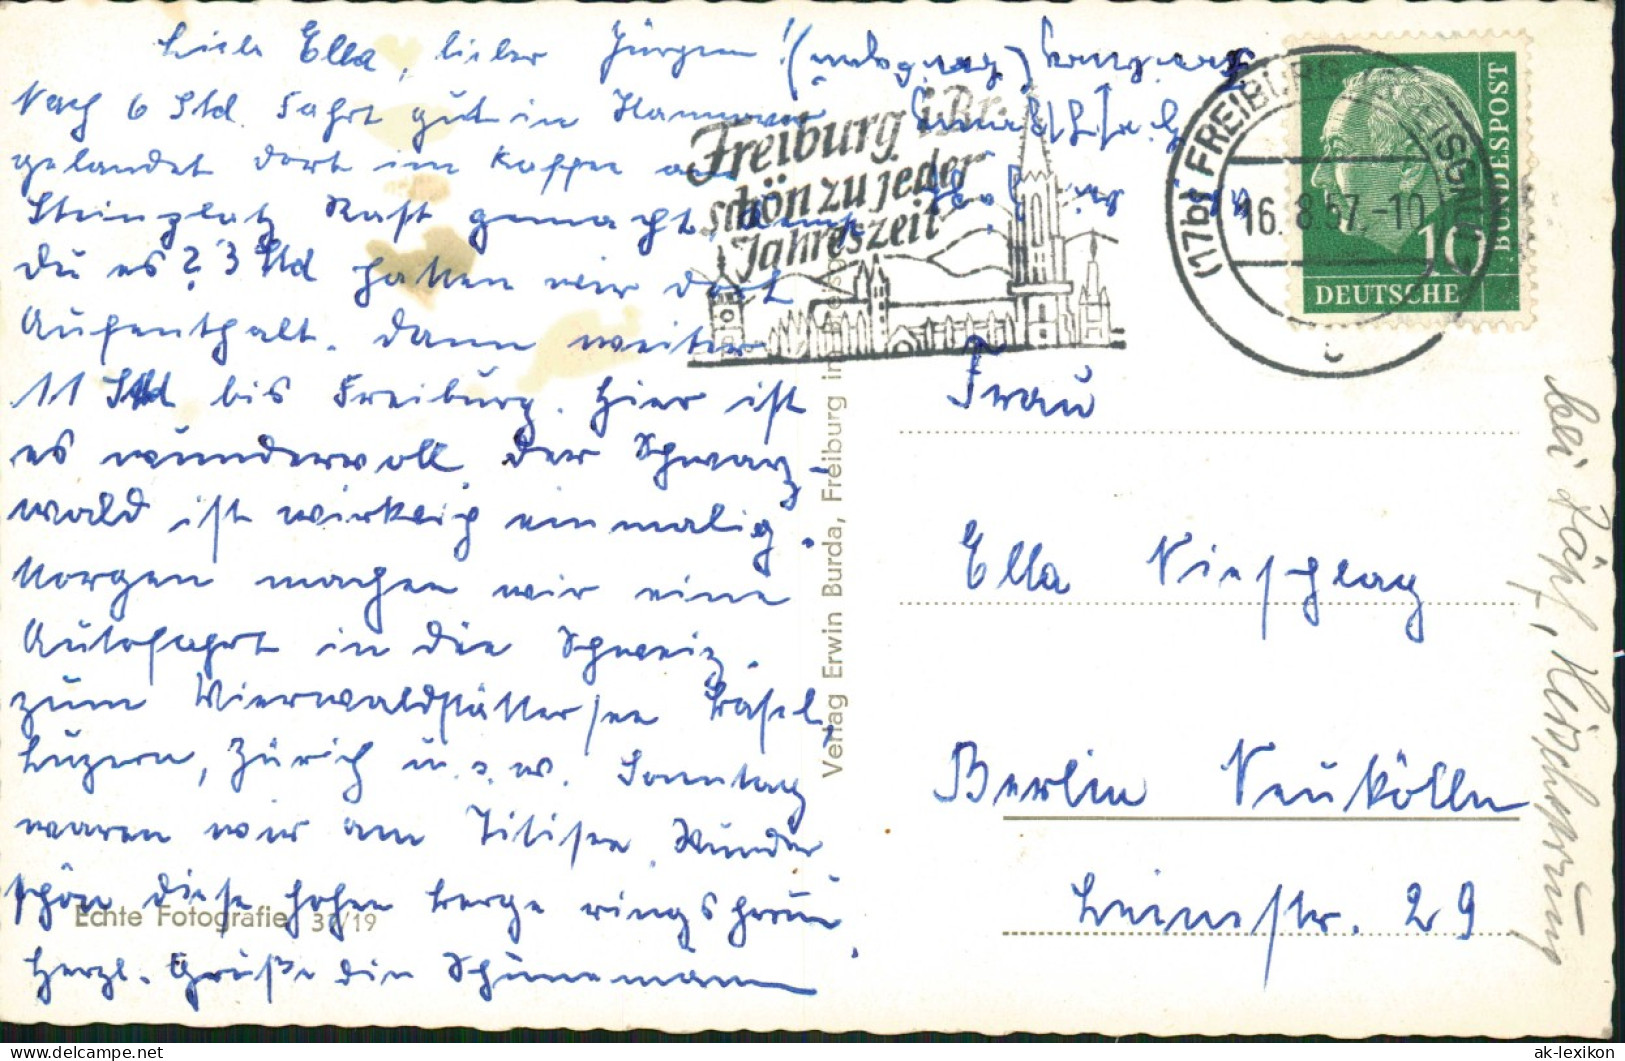 Liebe Ella, lieber Jürgen!
Nach 6 Std. Fahrt gut in Hannover
gelandet dort im Kaffee am
Steinplatz Rast gemacht, kennt
du es? 3 Std hatten wir dort
Aufenthalt. Dann weiter
11 Std bis Freiburg. Hier ist
es wundervoll der Schwarz-
wald ist wirklich einmalig.
Morgen machen wir eine
Autofahrt in die Schweiz.
zum Vierwaldstättersee Basel,
Luzern, Zürich u.s.w. Sonntag
waren wir am Titisee. Wunder
schön diese hohen Berge ringsherum.
Herzl. Grüße die Schünemann
Echte Fotografie 31/19
Verlag Erwin Burda, Freiburg im Breisgau
Freiburg i. Br.
schön zu jeder
Jahreszeit
(17b) FREIBURG (BREISGAU)
16. 8.57.-10
c
DEUTSCHE
BUNDESPOST
10
Frau
Ella Nieschlag
Berlin Neukölln
Leinestr. 29
bei